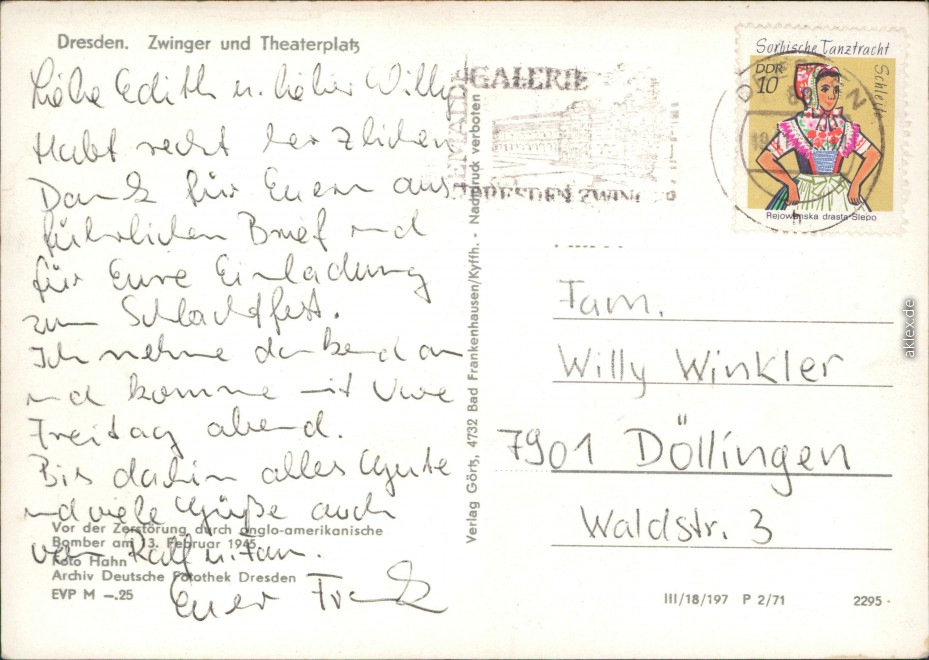 Dresden. Zwinger und Theaterplatz
Liebe Edith u. lieber Willy
Habt recht herzlichen
Dank für Euern aus
führlichen Brief und
für Eure Einladung
zum Schlachtfest.
Ich nehme dankend an
und komme mit Uwe
Freitag abend.
Bis dahin alles Gute
und viele Grüße auch
von Ralf u. Fam.
Euer Frank
Vor der Zerstörung durch anglo-amerikanische
Bomber am 13. Februar 1945
Foto Hahn
Archiv Deutsche Fotothek Dresden
EVP M —.25
Verlag Görtz, 4732 Bad Frankenhausen/Kyffh. - Nachdruck verboten
GALERIE
DRESDEN ZWIN
Sorbische Tanztracht
Schleife
DDR
10
Rejowanska drasta Slepo
Fam.
Willy Winkler
7901 Döllingen
Waldstr. 3
III/18/197 P 2/71 2295
aklex.de